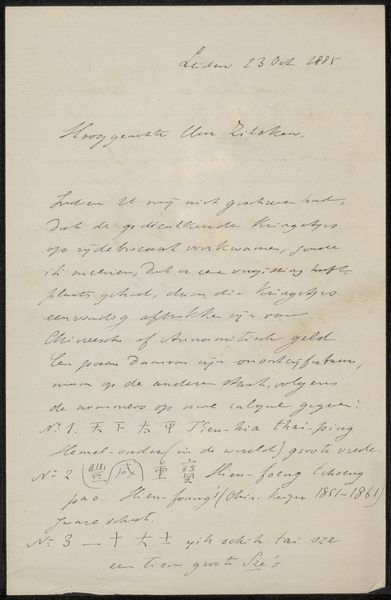 Leiden 23 Oct 1885
Hooggeachte Heer Zilcken,
Indien U mij niet geschreven had,
dat de gedrukte kringetjes
op zijdebrocaat voorkwamen, zoude
ik meenen, dat er eene vergissing heeft
plaats gehad, daar die kringetjes
eenvoudig afdrukken zijn van
Chineesch of Annamitisch geld
Een paar daarvan zijn onontcijferbaar,
maar op de anderen staat, volgens
de nommers op uwe calque gegeven:
No 1. 天下太平 Tien-hia thai-ping
Hemel-onder (in de wereld) groote vrede.
No 2 豐咸重寶 Hien-foeng tchoeng
pao. Hien-foeng's (Chin. keizer 1851-1861)
zware schat.
No 3 一十大士 yih schih tai sze
een tien groote Sze's.